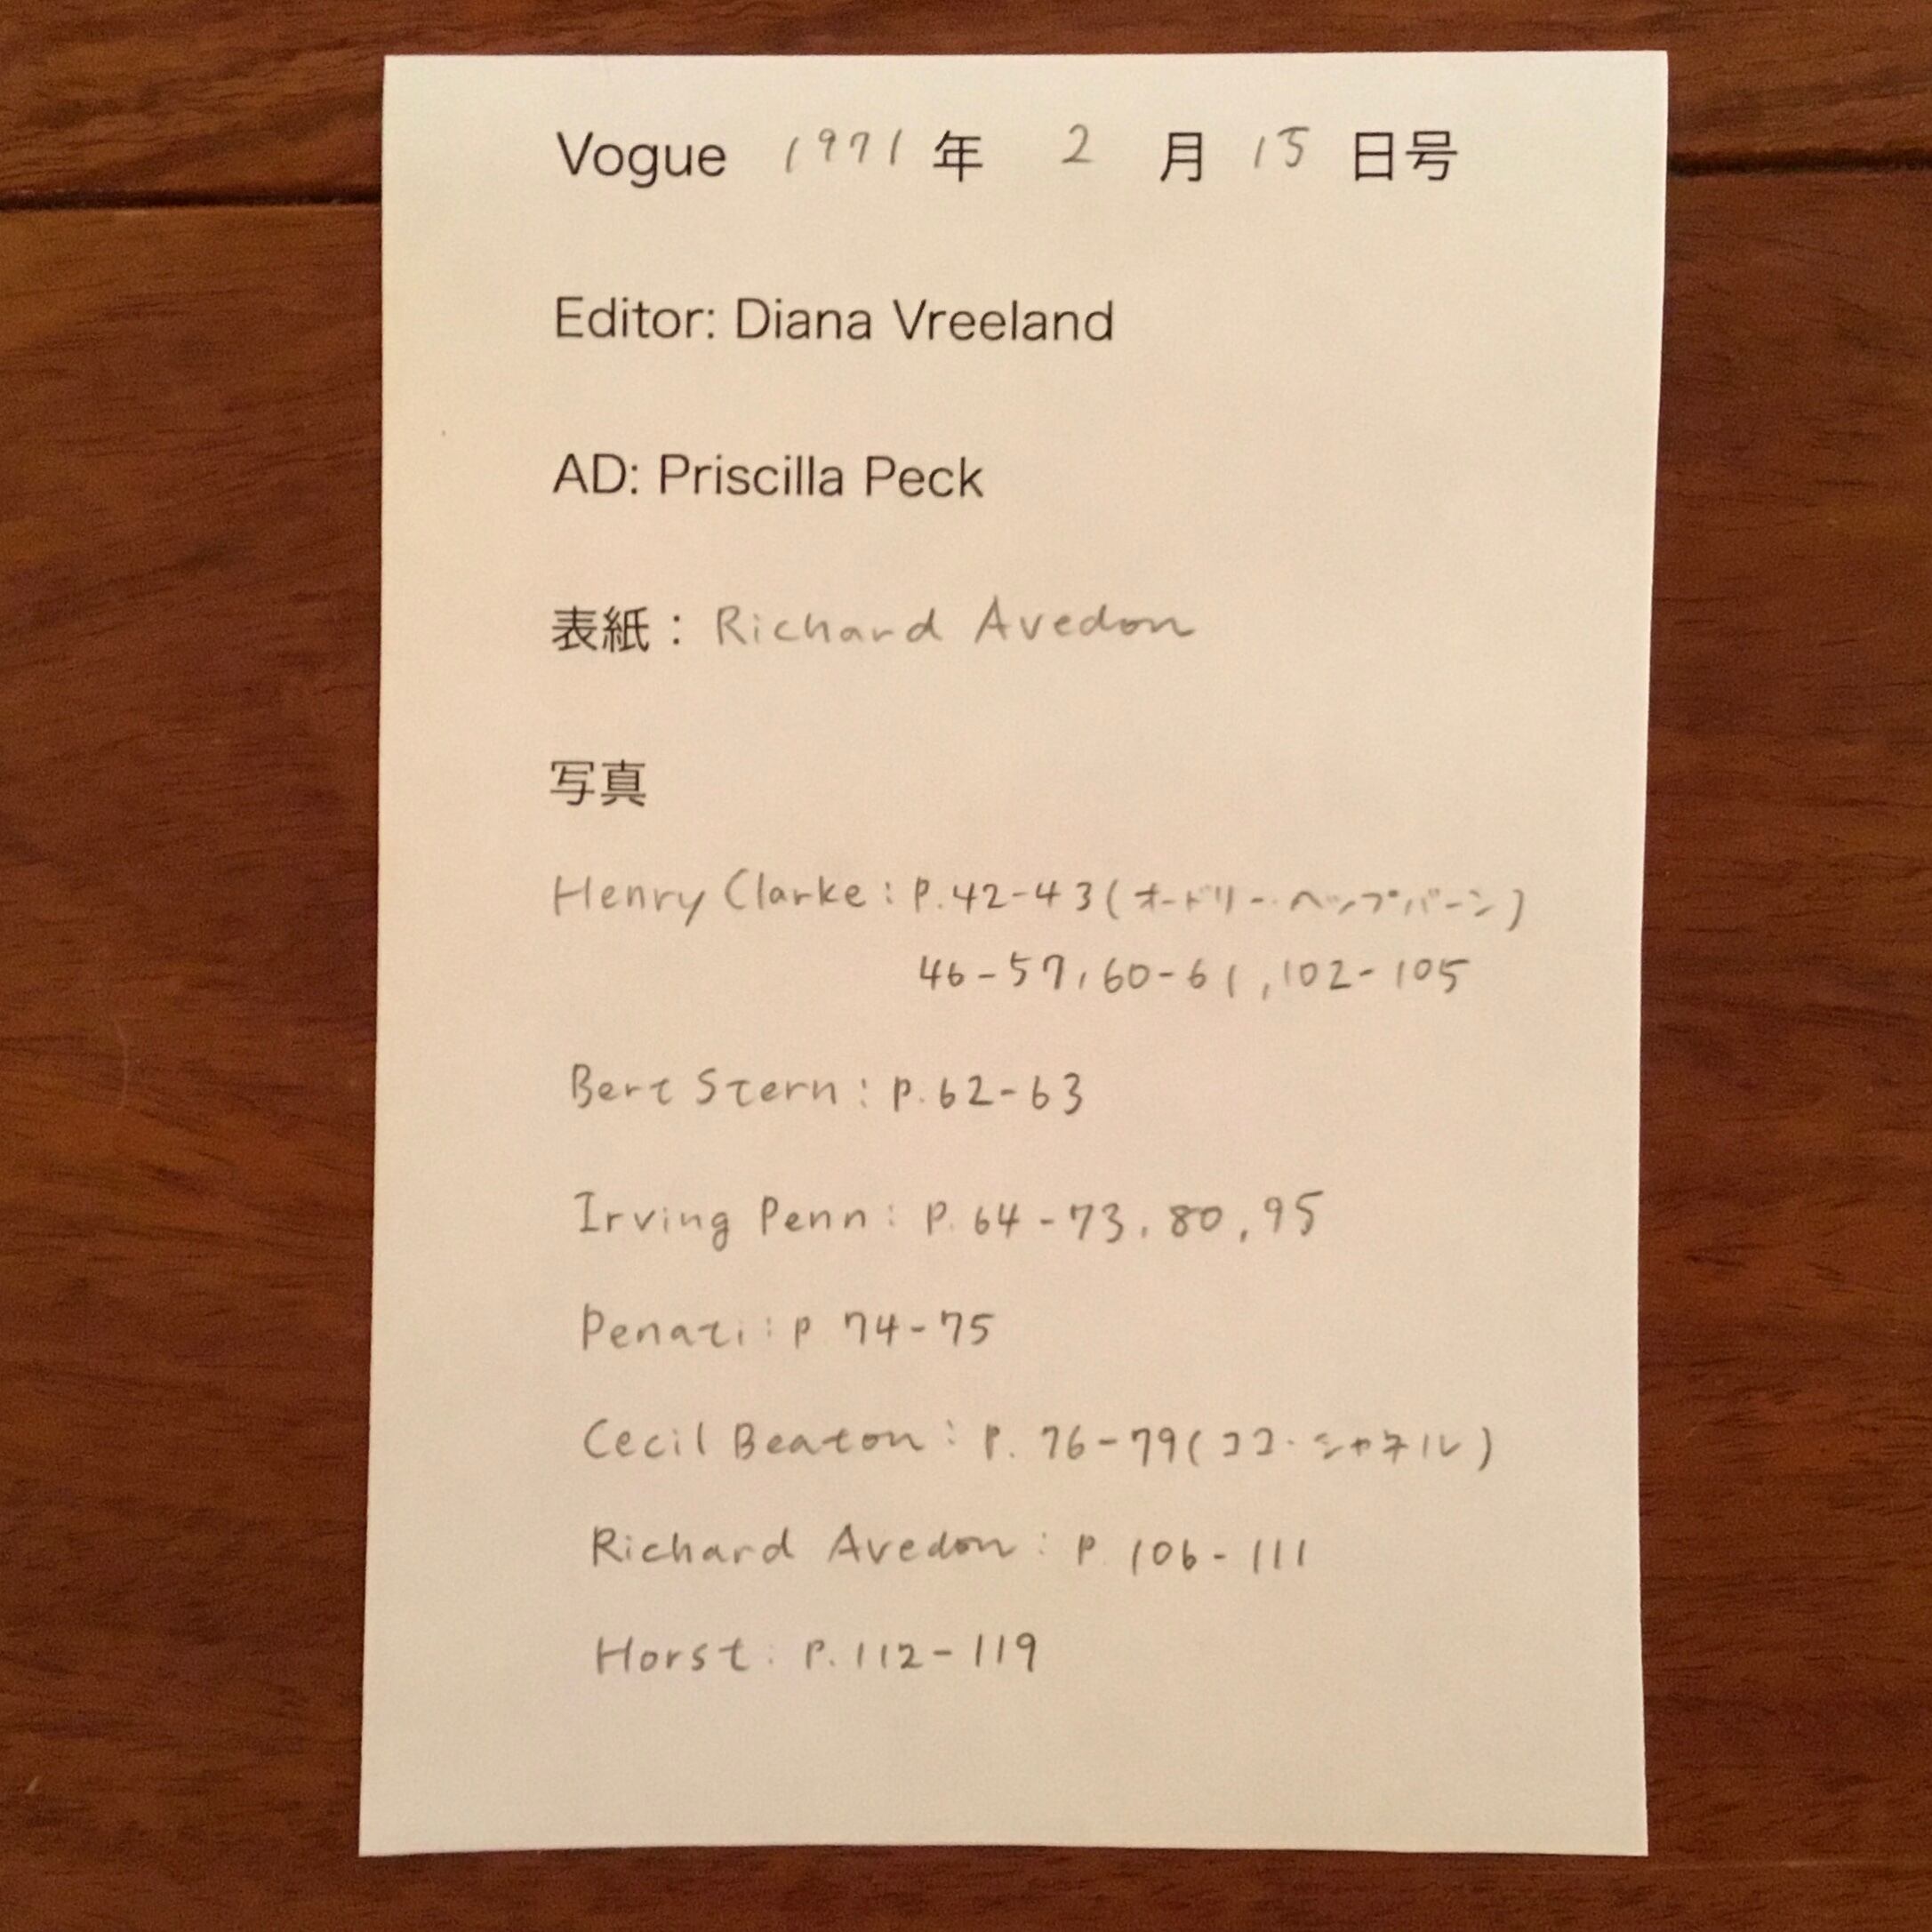 Vogue 1971 年 2 月 15 日号
Editor: Diana Vreeland
AD: Priscilla Peck
表紙： Richard Avedon
写真
Henry Clarke: P.42-43(オードリー・ヘップバーン)
46-57, 60-61, 102-105
Bert Stern: P.62-63
Irving Penn: P.64-73, 80, 95
Penati: P 74-75
Cecil Beaton: P. 76-79(ココ・シャネル)
Richard Avedon: P. 106-111
Horst: P.112-119